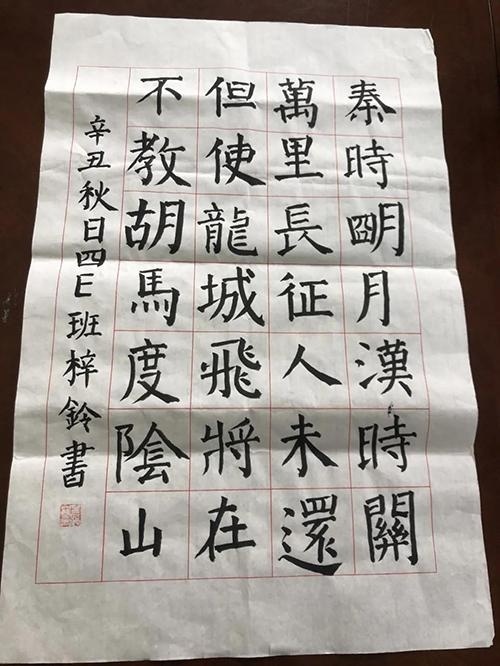 秦時朙月漢時關
萬里長征人未還
但使龍城飛將在
不教胡馬度陰山
辛丑秋日四E班梓鈴書